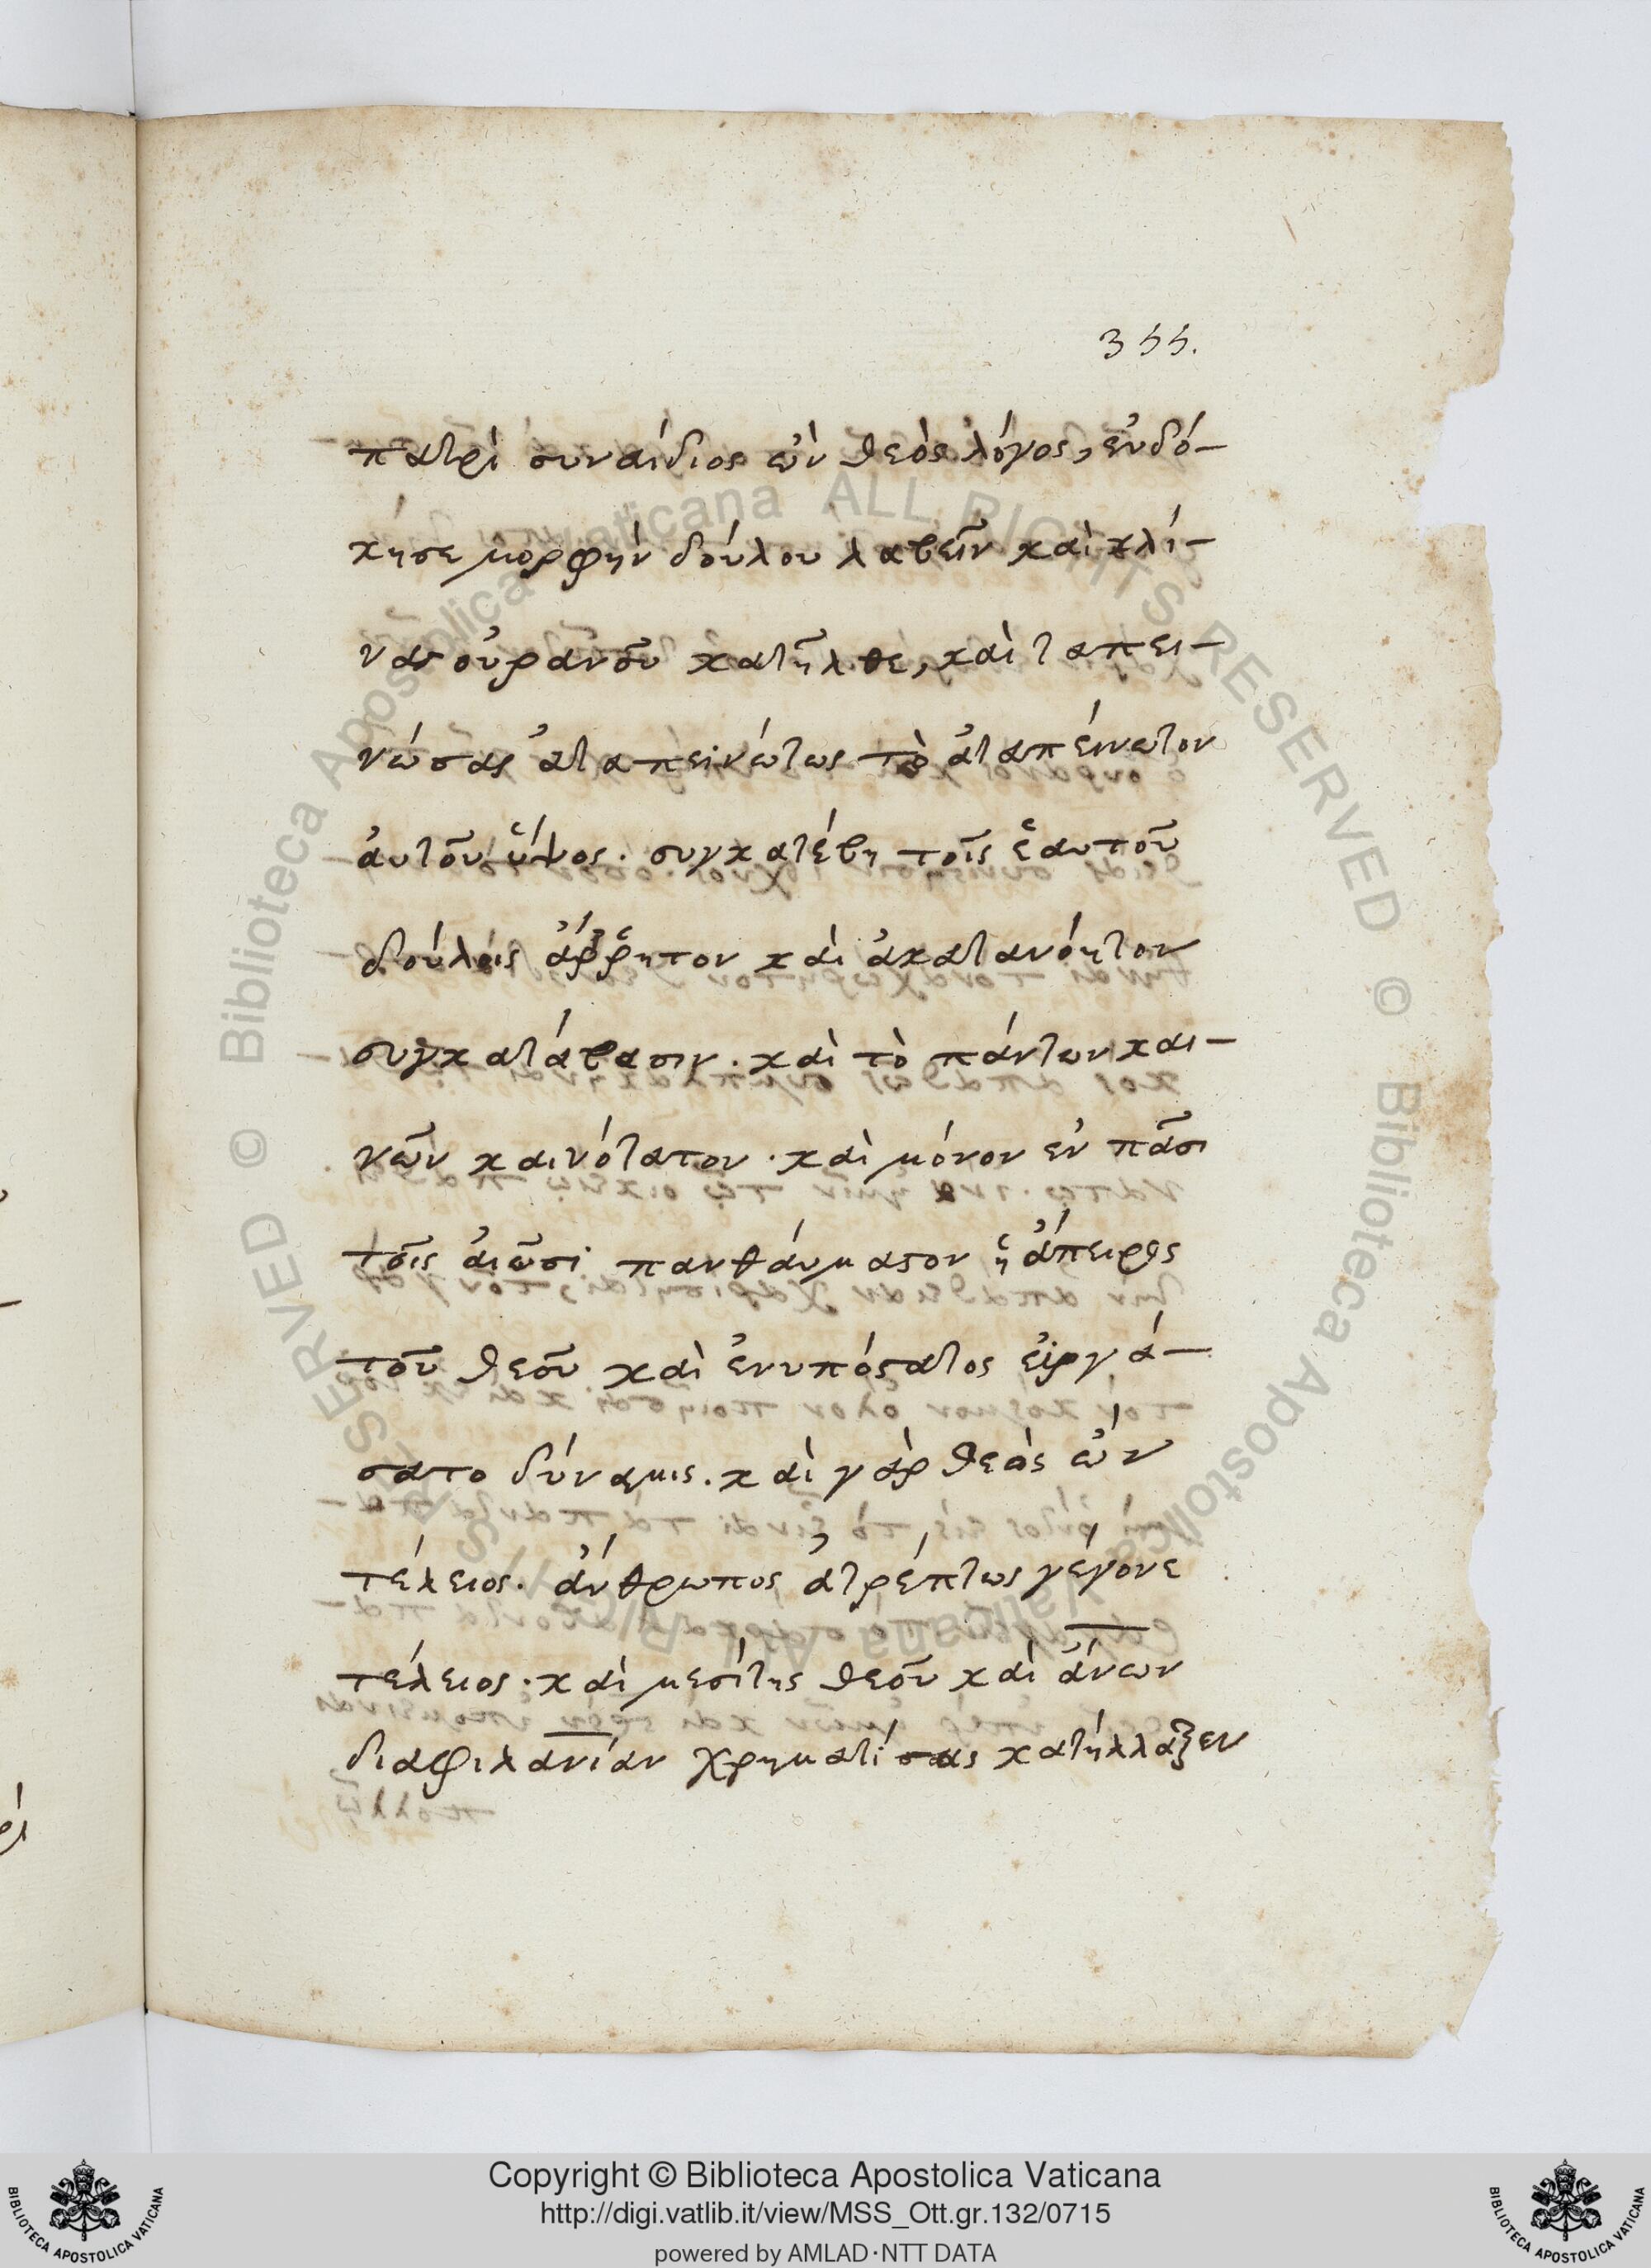 355.
πατρὶ συναΐδιος ὢν θεὸς λόγος, εὐδό-
κησε μορφὴν δούλου λαβεῖν καὶ κλί-
νας οὐρανοῦ κατῆλθε, καὶ ταπει-
νώσας ἀταπεινώτως τὸ ἀταπείνωτον
ἀυτοῦ ὕψος. συγκατέβη τοῖς ἑαυτοῦ
δούλοις ἄῤῥητον καὶ ἀκατανόητον
συγκατάβασιν. καὶ τὸ πάντων και-
νῶν καινότατον. καὶ μόνον ἐν πᾶσι
τοῖς ἀιῶσι πανθάυμαστον ἡ ἄπειρος
τοῦ θεοῦ καὶ ἐνυπόστατος εἰργά-
σατο δύναμις. καὶ γὰρ θεὸς ὢν
τέλειος. ἄνθρωπος ἀτρέπτως γέγονε
τέλειος. καὶ μεσίτης θεοῦ καὶ ἄνων
διαφιλανίαν χρηματίσας κατήλλαξεν
© Biblioteca Apostolica Vaticana ALL RIGHTS RESERVED
© Biblioteca Apostolica Vaticana ALL RIGHTS RESERVED
BIBLIOTECA APOSTOLICA VATICANA
Copyright © Biblioteca Apostolica Vaticana
http://digi.vatlib.it/view/MSS_Ott.gr.132/0715
powered by AMLAD·NTT DATA
BIBLIOTECA APOSTOLICA VATICANA